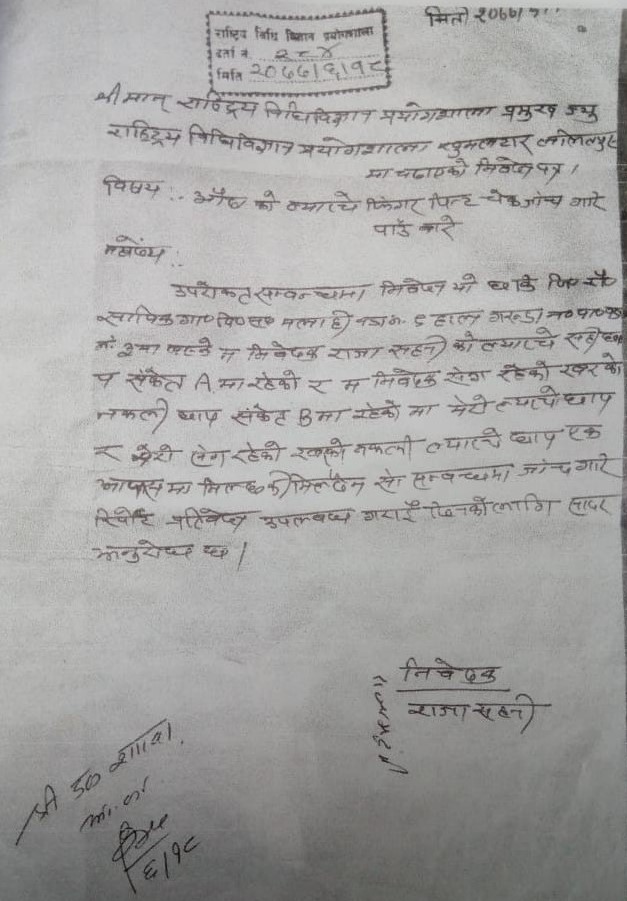 मिति २०७७/
राष्ट्रिय विधि विज्ञान प्रयोगशाला
दर्ता नं. २८४
मिति २०७७/६/१८
श्रीमान् राष्ट्रिय विधिविज्ञान प्रयोगशाला प्रमुख ज्यु
राष्ट्रिय विधिविज्ञान प्रयोगशाला खुमलटार ललितपुर
मा चढाएको निवेदन पत्र ।
विषय :- औंठा को ल्याप्चे फिंगर प्रिन्ट चेक जाँच गरि
पाउँ बारे
महोदय :
उपरोक्त सम्बन्धमा निवेदन यो छ कि जिल्ला
साविक गा०वि०स० वडा नं. ६ हाल गरुडा न०पा०
नं बस्ने म निवेदक राजा सहनी को ल्याप्चे सही छा
प संकेत A मा रहेको र म निवेदक संग रहेको रबर को
नक्कली छाप संकेत B मा रहेको मा मेरो ल्याप्चे छाप
र मेरो संग रहेको रबरको नक्कली ल्याप्चे छाप एक
आपस मा मिल्छ की मिल्दैन सो सम्बन्धमा जाँच गरि
रिपोर्ट प्रतिवेदन उपलब्ध गराई दिनको लागि सादर
अनुरोध छ ।
निवेदक
राजा सहनी
श्री शाखा
६/१८